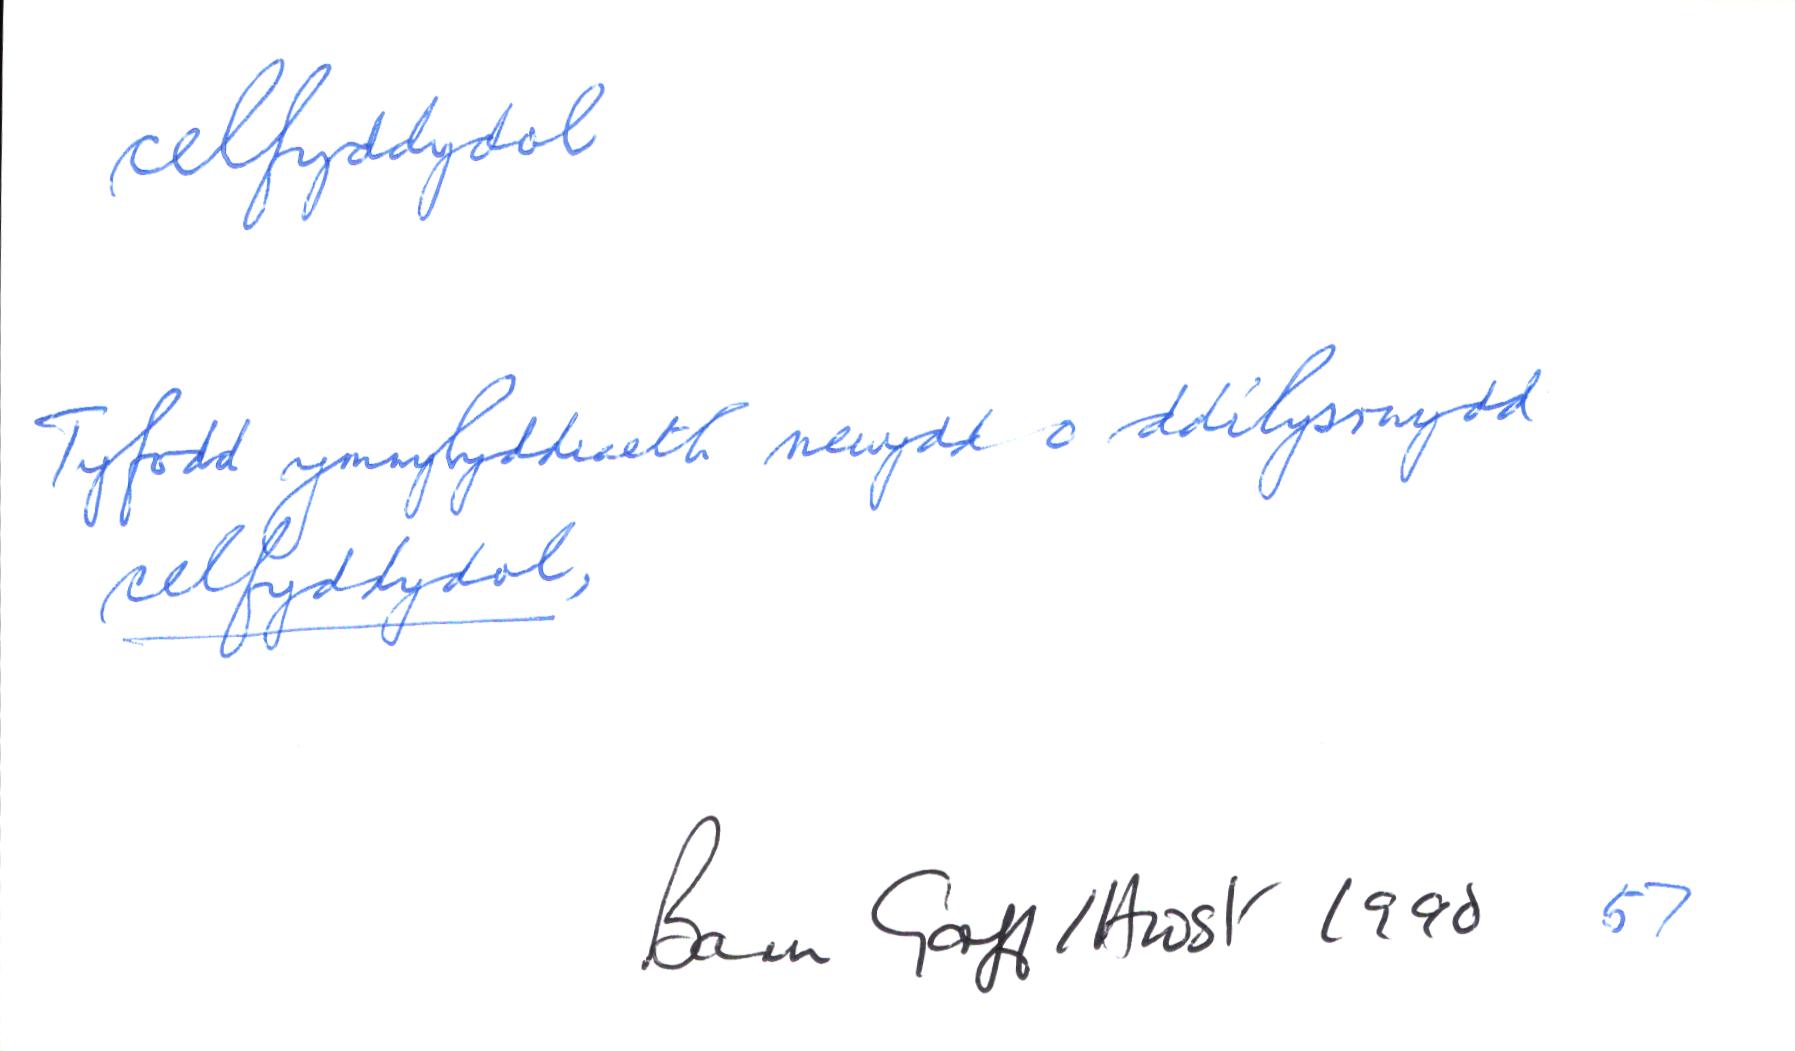 celfyddydol
Tyfodd ymwybyddiaeth newydd o ddilysrwydd
celfyddydol,
Barn Gorff/Awst 1990 57